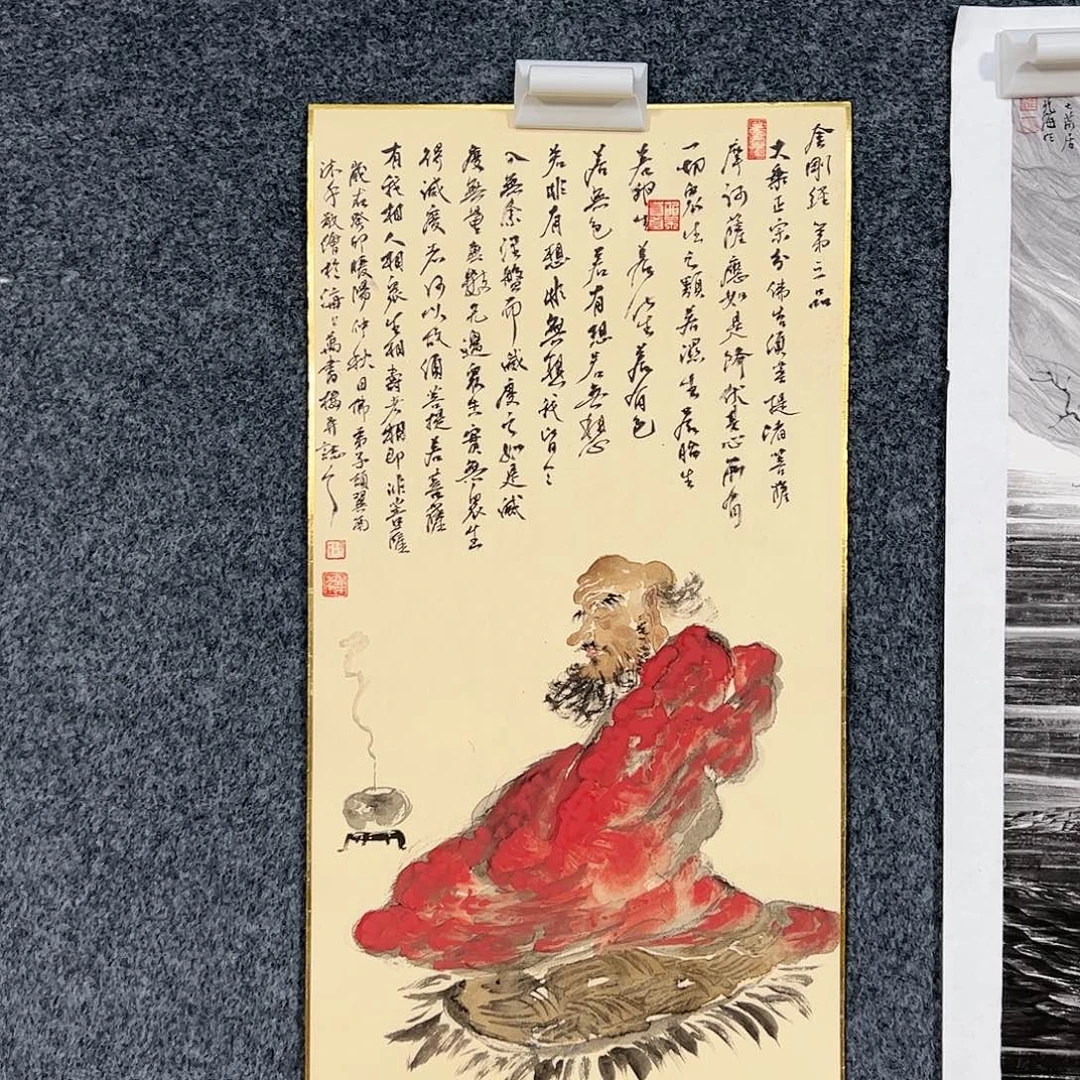 金剛經第三品
大乘正宗分佛告須菩提諸菩薩
摩訶薩應如是降伏其心所有
一切眾生之類若濕生若胎生
若卵生若化生若有色
若無色若有想若無想
若非有想非無想我皆令
入無餘涅槃而滅度之如是滅
度無量無數无邊眾生實無眾生
得滅度者何以故須菩提若菩薩
有我相人相眾生相壽者相即非菩薩
歲在癸卯暖陽仲秋日佛弟子
沐手敬繪於海上萬書樓并誌之